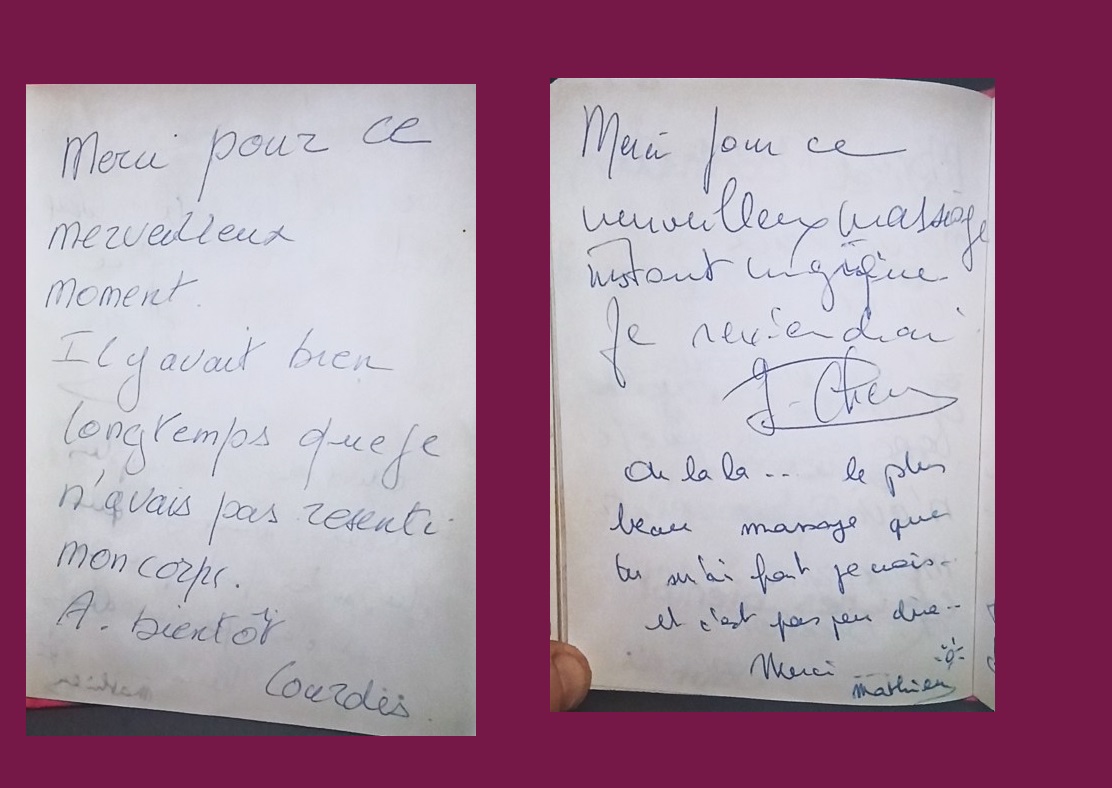 Merci pour ce
merveilleux
moment.
Il y avait bien
longtemps que je
n'avais pas resenti
mon corps.
A. bientôt
Lourdès
Merci pour ce
merveilleux massage
instant magique
Je reviendrai
J. Chen
Oh la la -- le plus
beau massage que
tu m'ai fait je crois -
et c'est pas peu dire --
Merci
mathieu